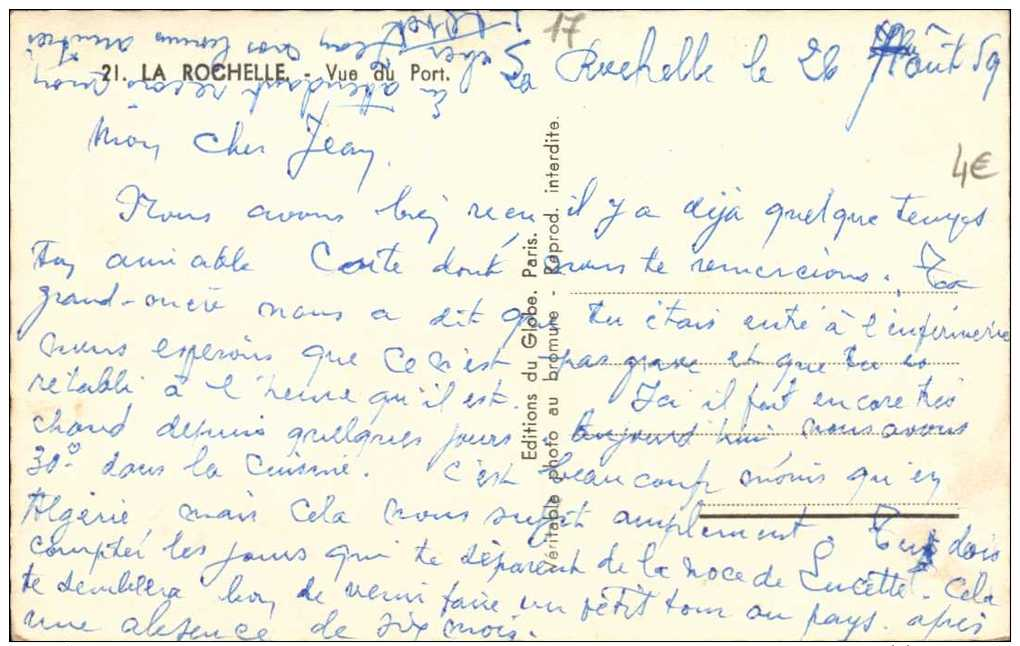 17
21. LA ROCHELLE. - Vue du Port.
La Rochelle le 26 Août 59
4€
Mon cher Jean,
Nous avons bien reçu il y a déjà quelque temps
ton amiable Carte dont nous te remercions. Ta
grand-mère nous a dit que tu étais entré à l'infirmerie
nous espérons que ce n'est pas grave et que tu es
rétabli à l'heure qu'il est. Ici il fait encore très
chaud depuis quelques jours, aujourd'hui nous avons
30° dans la cuisine. C'est beaucoup moins qu'en
Algérie, mais cela nous suffit amplement. Tu dois
compter les jours qui te séparent de la noce de Lucette. Cela
te semblera bon de venir faire un petit tour au pays. après
une absence de six mois.
En attendant recois mon
cher Jean nos bonnes amitiés
Editions du Globe. Paris.
Véritable photo au bromure - Reprod. interdite.